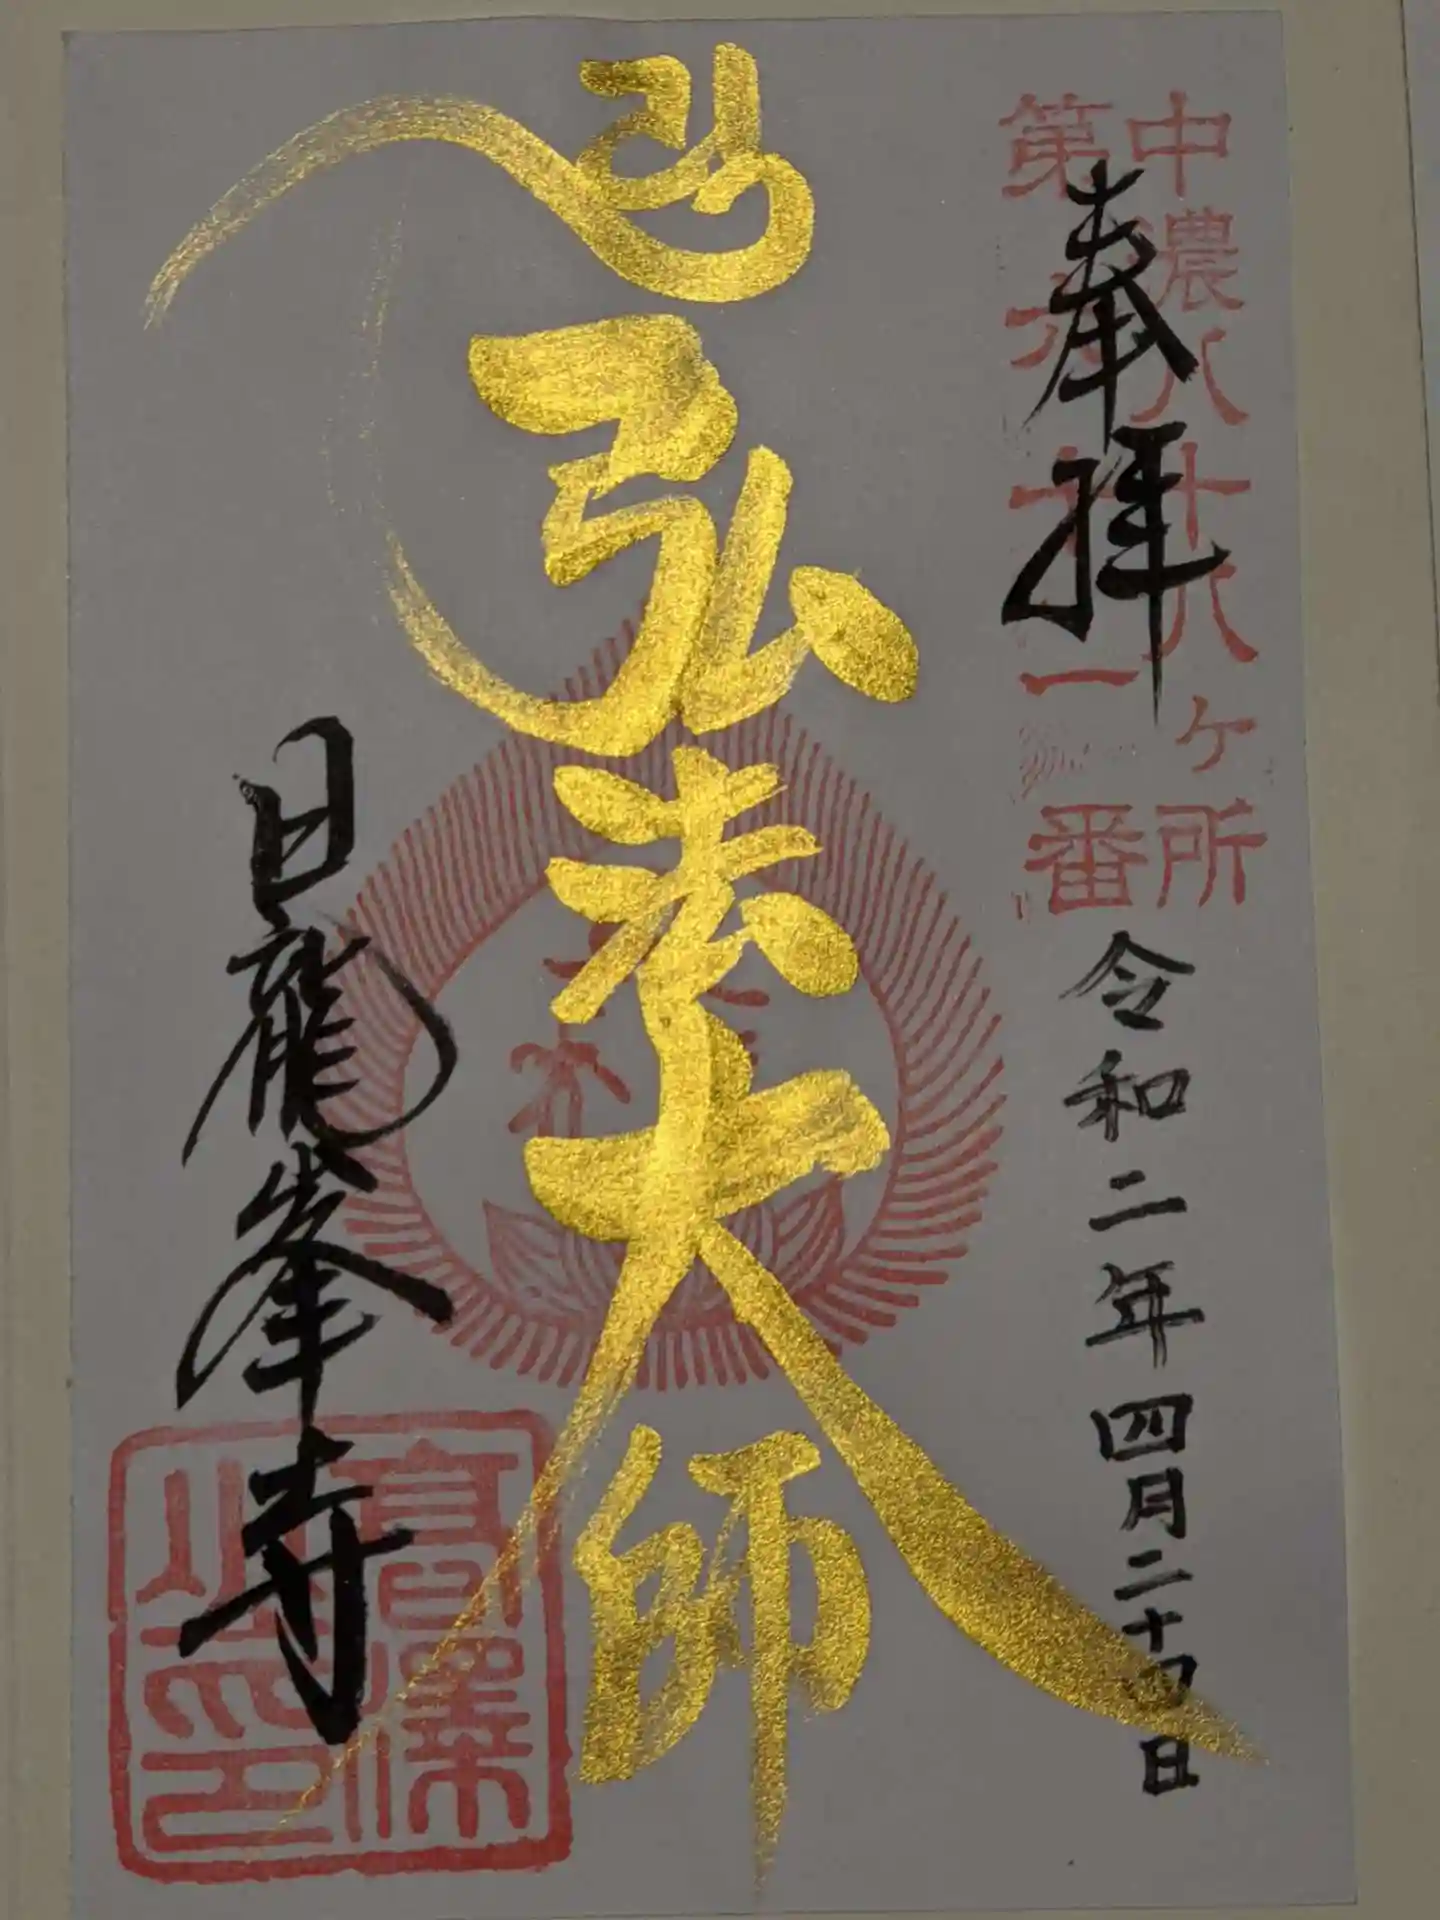 中濃八十八ヶ所
第六十一番
奉拝
令和二年四月二十四日
弘法大師
日龍峯寺
高澤山之印